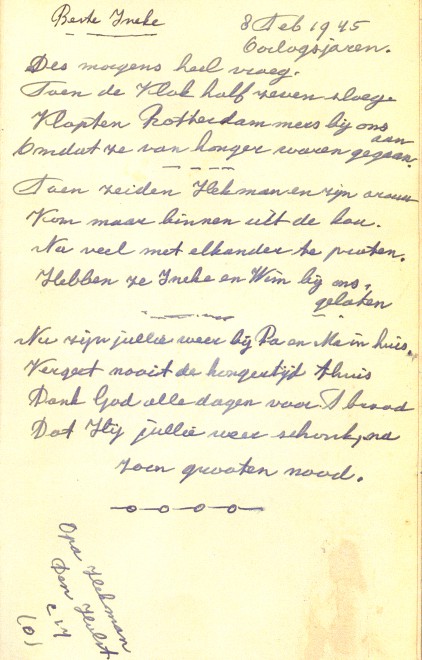 Beste Ineke
8 Feb 1945
Oorlogsjaren.
Des morgens heel vroeg.
Toen de Klok half zeven sloeg
Klopten Rotterdammers bij ons aan
Omdat ze van honger waren gegaan.
Toen zeiden Hekman en zijn vrouw
Kom maar binnen uit de kou.
Na veel met elkander te praten.
Hebben ze Ineke en Wim bij ons,
gelaten
Nu zijn jullie weer bij Pa en Ma in huis.
Vergeet nooit de hongertijd thuis
Dank God alle dagen voor 't brood
Dat Hij jullie weer schonk, na
zoon grooten nood.
Opa Hekman
Den Hulst
(0)